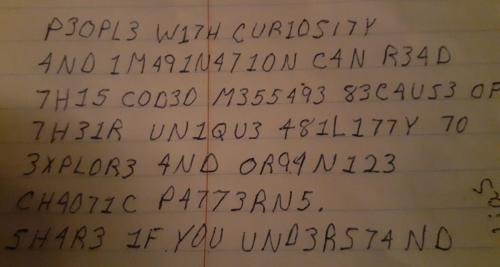 P3OPL3 W17H CUR1OS17Y
4ND 1M491N4710N C4N R34D
7H15 COD3D M355493 83C4US3 OF
7H31R UN1QU3 481L177Y 7O
3XPLOR3 4ND OR94N123
CH4071C P4773RN5.
5H4R3 1F YOU UND3R574ND